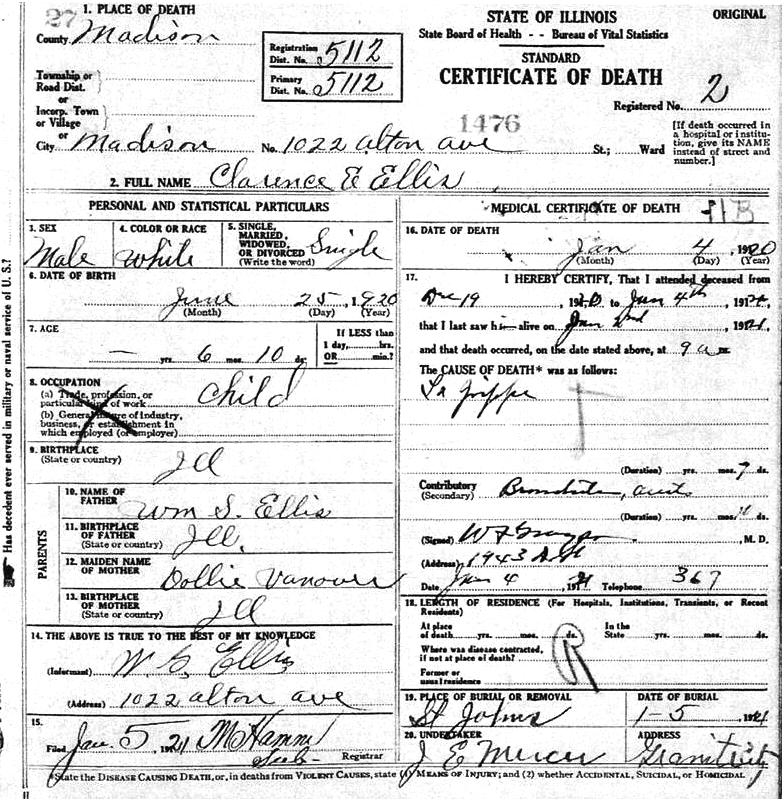 27
1. PLACE OF DEATH
County Madison
Registration Dist. No. 5112
Primary Dist. No. 5112
Township or Road Dist.
or
Incorp. Town or Village
or
City Madison No. 1022 Alton Ave St.; Ward
1476
STATE OF ILLINOIS
ORIGINAL
State Board of Health - - Bureau of Vital Statistics
STANDARD
CERTIFICATE OF DEATH
Registered No. 2
[If death occurred in
a hospital or institu-
tion, give its NAME
instead of street and
number.]
2. FULL NAME Clarence E Ellis
PERSONAL AND STATISTICAL PARTICULARS
3. SEX
Male
4. COLOR OR RACE
White
5. SINGLE,
MARRIED,
WIDOWED,
OR DIVORCED
(Write the word)
Single
6. DATE OF BIRTH
June 25, 1920
(Month) (Day) (Year)
7. AGE
— yrs. 6 mos. 10 ds.
If LESS than
1 day,.....hrs.
OR.....min.?
8. OCCUPATION
(a) Trade, profession, or
particular kind of work
Child
(b) General nature of industry,
business, or establishment in
which employed (or employer)
9. BIRTHPLACE
(State or country)
Ill
PARENTS
10. NAME OF
FATHER
Wm S. Ellis
11. BIRTHPLACE
OF FATHER
(State or country)
Ill.
12. MAIDEN NAME
OF MOTHER
Dollie Vanover
13. BIRTHPLACE
OF MOTHER
(State or country)
Ill
14. THE ABOVE IS TRUE TO THE BEST OF MY KNOWLEDGE
(Informant) W. S. Ellis
(Address) 1022 Alton Ave
15.
Filed Jan. 5, 1921
Registrar
MEDICAL CERTIFICATE OF DEATH
16. DATE OF DEATH
Jan 4, 1920
(Month) (Day) (Year)
17. I HEREBY CERTIFY, That I attended deceased from
Dec 19, 1920 to Jan 4th, 1921,
that I last saw him alive on Jan 2nd, 1921,
and that death occurred, on the date stated above, at 9 a m.
The CAUSE OF DEATH* was as follows:
La Grippe
(Duration) yrs. mos. 7 ds.
Contributory
(Secondary)
Bronchitis, acute
(Duration) yrs. mos. ds.
(Signed) , M. D.
(Address) 1943
Date Jan 4 Telephone 367
18. LENGTH OF RESIDENCE (For Hospitals, Institutions, Transients, or Recent
Residents)
At place
of death.....yrs.....mos.....ds.
In the
State.....yrs.....mos.....ds.
Where was disease contracted,
if not at place of death?
Former or
usual residence
19. PLACE OF BURIAL OR REMOVAL
St Johns
DATE OF BURIAL
1-5 1921
20. UNDERTAKER
J E Mercer
ADDRESS
Granite City
*State the DISEASE CAUSING DEATH, or, in deaths from VIOLENT CAUSES, state (1) MEANS OF INJURY; and (2) whether ACCIDENTAL, SUICIDAL, or HOMICIDAL
Has decedent ever served in military or naval service of U. S.?